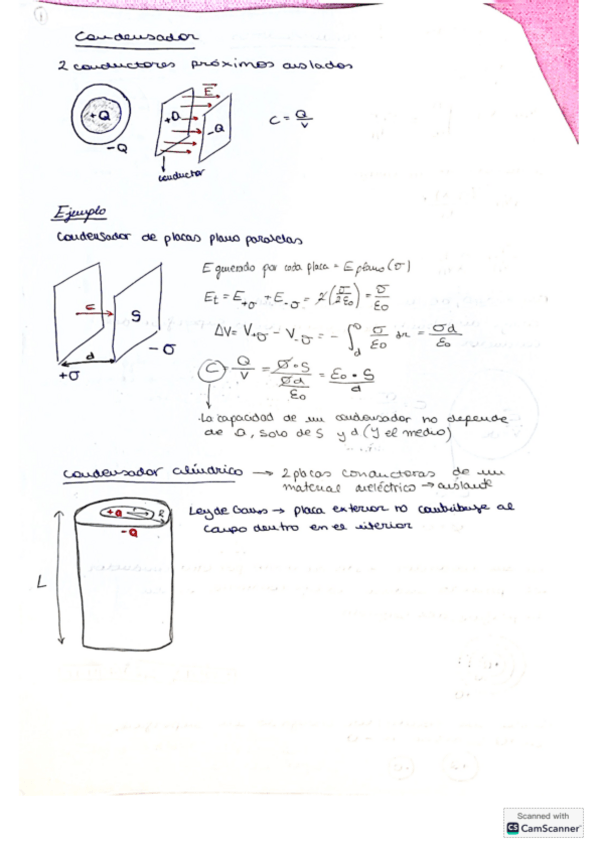 1
Condensador
2 conductores próximos aislados
+Q
-Q
+Q
E
-Q
conductor
C = Q/V
Ejemplo
Condensador de placas plano paralelas
E
S
d
+σ
-σ
E generado por cada placa = E plano (σ)
Et = E+σ + E-σ = 2(σ/2ε0) = σ/ε0
ΔV = V+σ - V-σ = - ∫ σ/ε0 dr = σd/ε0
C = Q/V = σ·S / (σd/ε0) = ε0 · S/d
La capacidad de un condensador no depende
de Q, solo de S y d (y el medio)
Condensador cilíndrico → 2 placas conductoras de un
material dieléctrico → aislante
+Q
-Q
L
Ley de Gauss → placa exterior no contribuye al
campo dentro en el interior
Scanned with
CS CamScanner